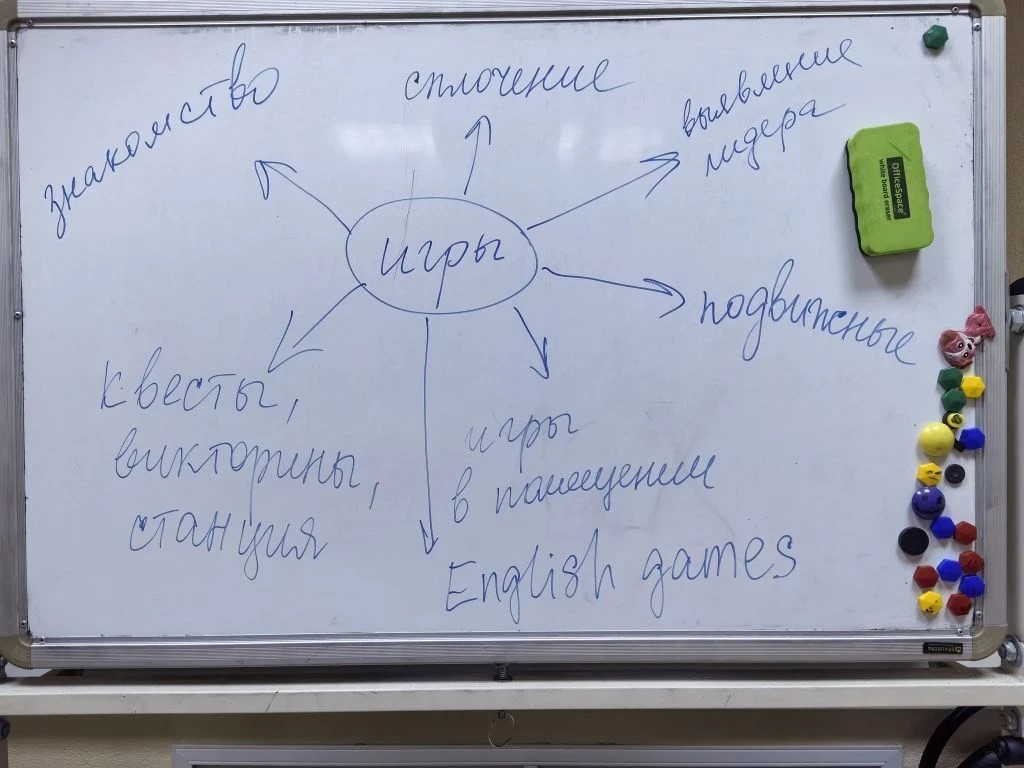 знакомство
сплочение
выявление
лидера
игры
подвижные
квесты,
викторины,
станция
игры
в помещении
English games
OfficeSpace
white board eraser
BRAUBERG